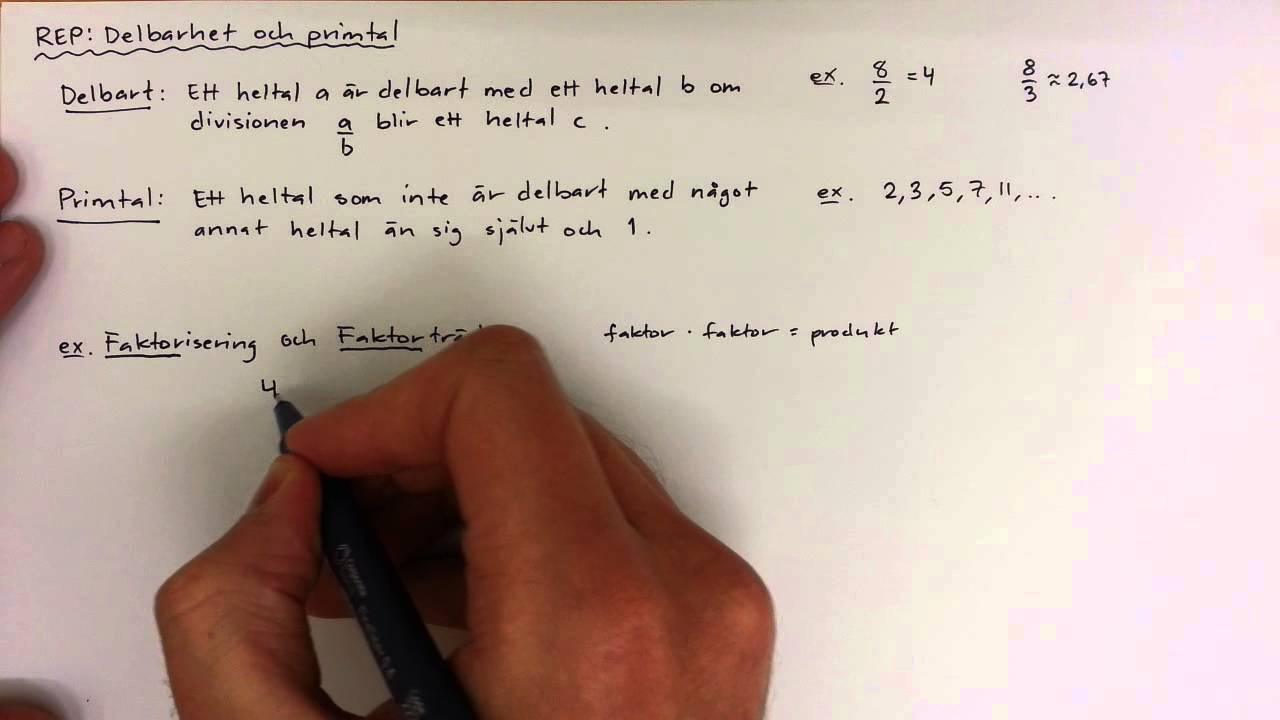 REP: Delbarhet och primtal
Delbart: Ett heltal a är delbart med ett heltal b om
divisionen a/b blir ett heltal c.
ex. 8/2 = 4 8/3 ≈ 2,67
Primtal: Ett heltal som inte är delbart med något
annat heltal än sig självt och 1.
ex. 2, 3, 5, 7, 11, ...
ex. Faktorisering och Faktorträ
faktor · faktor = produkt
4